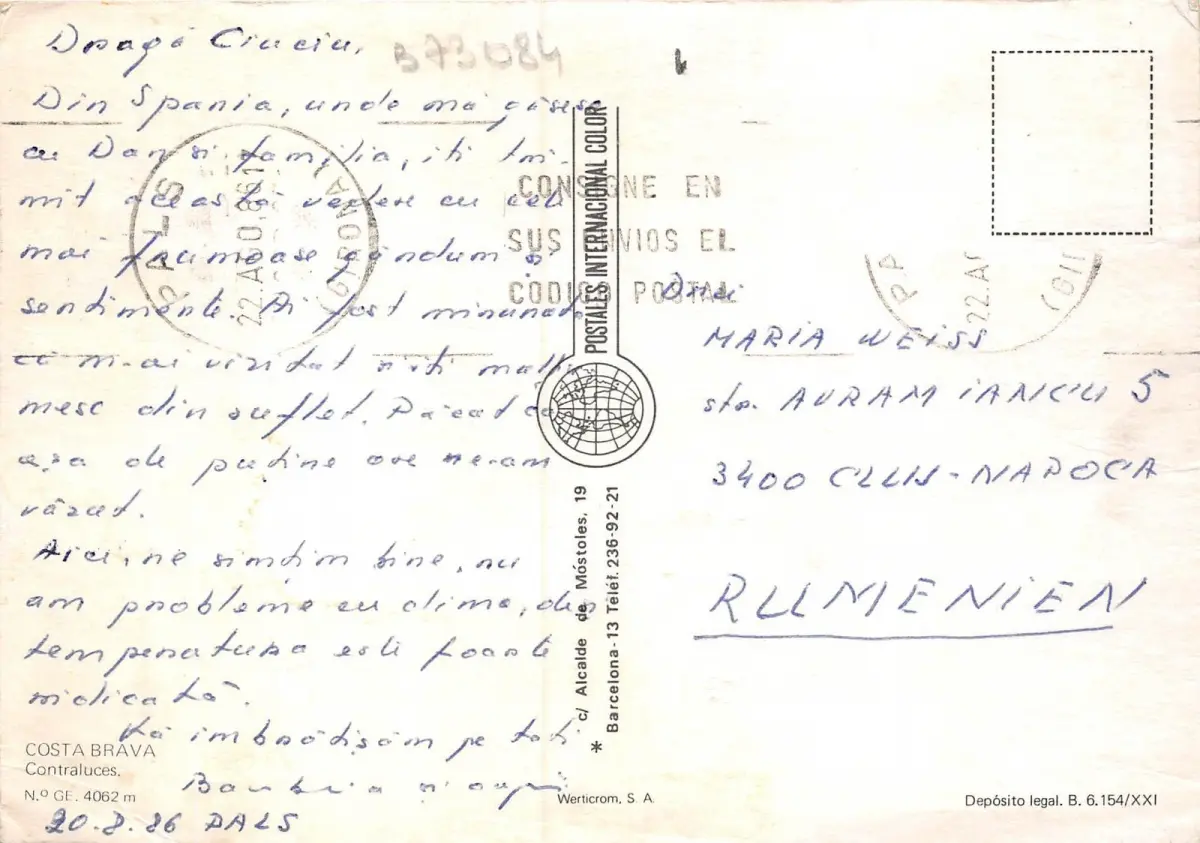 Dragă Ciuciu,
B73084
Din Spania, unde mă găsesc
cu Dan și familia, îți tri-
mit această vedere cu cele
mai frumoase gânduri și
sentimente. Ai fost minunată
că m-ai vizitat și-ți mulțu-
mesc din suflet. Păcat că
așa de puține ore ne-am
văzut.
Aici, ne simțim bine, nu
am probleme cu clima, deși
temperatura este foarte
ridicată.
Vă îmbrățișăm pe toți
20.8.86 PALS
COSTA BRAVA
Contraluces.
N.º GE. 4062 m
PALS
22 AGO. 86
(GIRONA)
CONSIGNE EN
SUS ENVIOS EL
CODIGO POSTAL
POSTALES INTERNACIONAL COLOR
c/ Alcalde de Móstoles, 19
* Barcelona-13 Teléf. 236-92-21
Werticrom, S. A.
PA
22.AG
(GI
Drei
MARIA WEISS
str. AVRAM IANCU 5
3400 CLUJ-NAPOCA
RUMENIEN
Depósito legal. B. 6.154/XXI